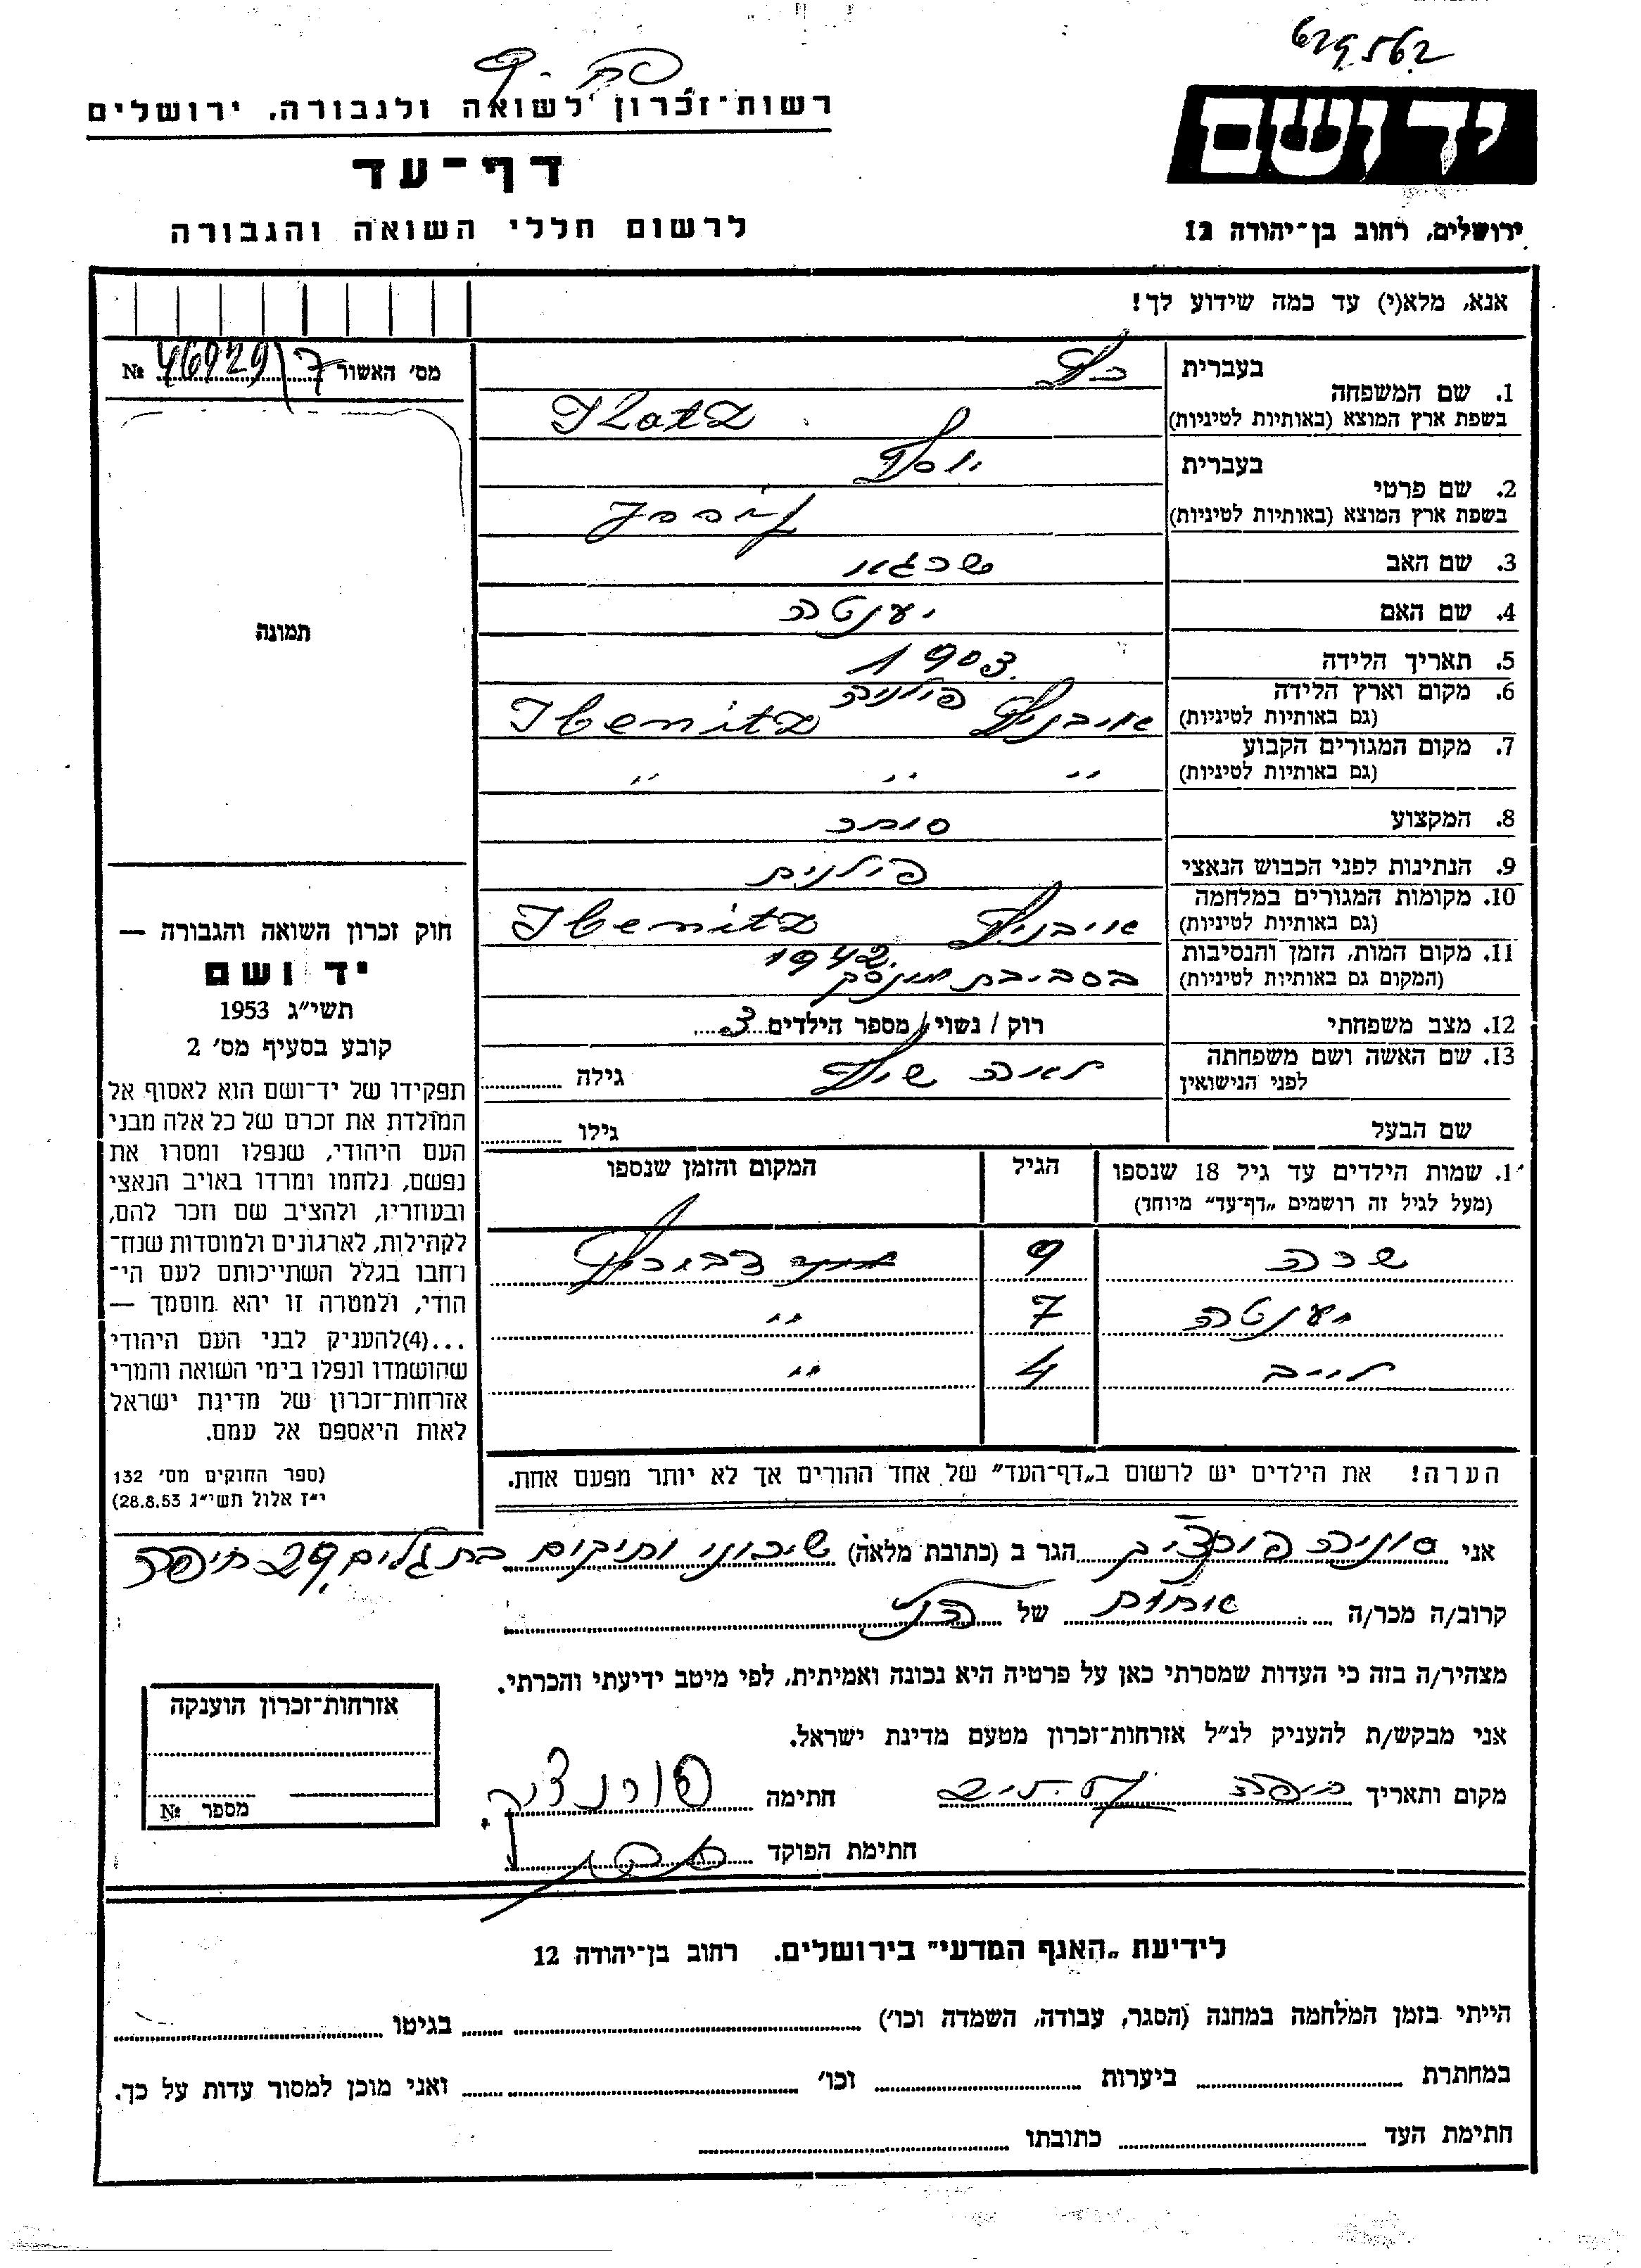 629562
רשות־זכרון לשואה ולגבורה, ירושלים
דף־עד
לרשום חללי השואה והגבורה
יד ושם
ירושלים, רחוב בן־יהודה 12
אנא, מלא(י) עד כמה שידוע לך!
מס׳ האשור 46929/7 №
תמונה
1. שם המשפחה
בעברית כץ
בשפת ארץ המוצא (באותיות לטיניות) Katz
2. שם פרטי
בעברית יוסף
בשפת ארץ המוצא (באותיות לטיניות)
3. שם האב שרגא
4. שם האם יענטה
5. תאריך הלידה 1903
6. מקום וארץ הלידה
(גם באותיות לטיניות) אויבניץ פולניה Ibenitz
7. מקום המגורים הקבוע
(גם באותיות לטיניות) ״ ״ ״
8. המקצוע סוחר
9. הנתינות לפני הכבוש הנאצי פולנית
10. מקומות המגורים במלחמה
(גם באותיות לטיניות) אויבניץ Ibenitz
11. מקום המות, הזמן והנסיבות
(המקום גם באותיות לטיניות) בסביבת מינסק 1942
12. מצב משפחתי רוק / נשוי / מספר הילדים 3
13. שם האשה ושם משפחתה
לפני הנישואין לאה שיף גילה
שם הבעל גילו
1. שמות הילדים עד גיל 18 שנספו הגיל המקום והזמן שנספו
(מעל לגיל זה רושמים „דף־עד״ מיוחד)
שרה 9
יענטה 7 ״
לייב 4 ״
הערה! את הילדים יש לרשום ב„דף־העד״ של אחד ההורים אך לא יותר מפעם אחת.
חוק זכרון השואה והגבורה —
יד ושם
תשי״ג 1953
קובע בסעיף מס׳ 2
תפקידו של יד־ושם הוא לאסוף אל
המולדת את זכרם של כל אלה מבני
העם היהודי, שנפלו ומסרו את
נפשם, נלחמו ומרדו באויב הנאצי
ובעוזריו, ולהציב שם וזכר להם,
לקהילות, לארגונים ולמוסדות שנח־
רחבו בגלל השתייכותם לעם הי־
הודי, ולמטרה זו יהא מוסמך —
...(4)להעניק לבני העם היהודי
שהושמדו ונפלו בימי השואה והמרי
אזרחות־זכרון של מדינת ישראל
לאות היאספם אל עמם.
(ספר החוקים מס׳ 132
י״ז אלול תשי״ג 28.8.53)
אני סוניה הגר ב (כתובת מלאה) שיכוני ותיקים בת גלים 29 חיפה
קרוב/ה מכר/ה אחות של הנ״ל
מצהיר/ה בזה כי העדות שמסרתי כאן על פרטיה היא נכונה ואמיתית, לפי מיטב ידיעתי והכרתי.
אני מבקש/ת להעניק לנ״ל אזרחות־זכרון מטעם מדינת ישראל.
מקום ותאריך חיפה חתימה
חתימת הפוקד
אזרחות־זכרון הוענקה
מספר №
לידיעת „האגף המדעי״ בירושלים. רחוב בן־יהודה 12
הייתי בזמן המלחמה במחנה (הסגר, עבודה, השמדה וכו׳) בגיטו
במחתרת ביערות וכו׳ ואני מוכן למסור עדות על כך.
חתימת העד כתובתו